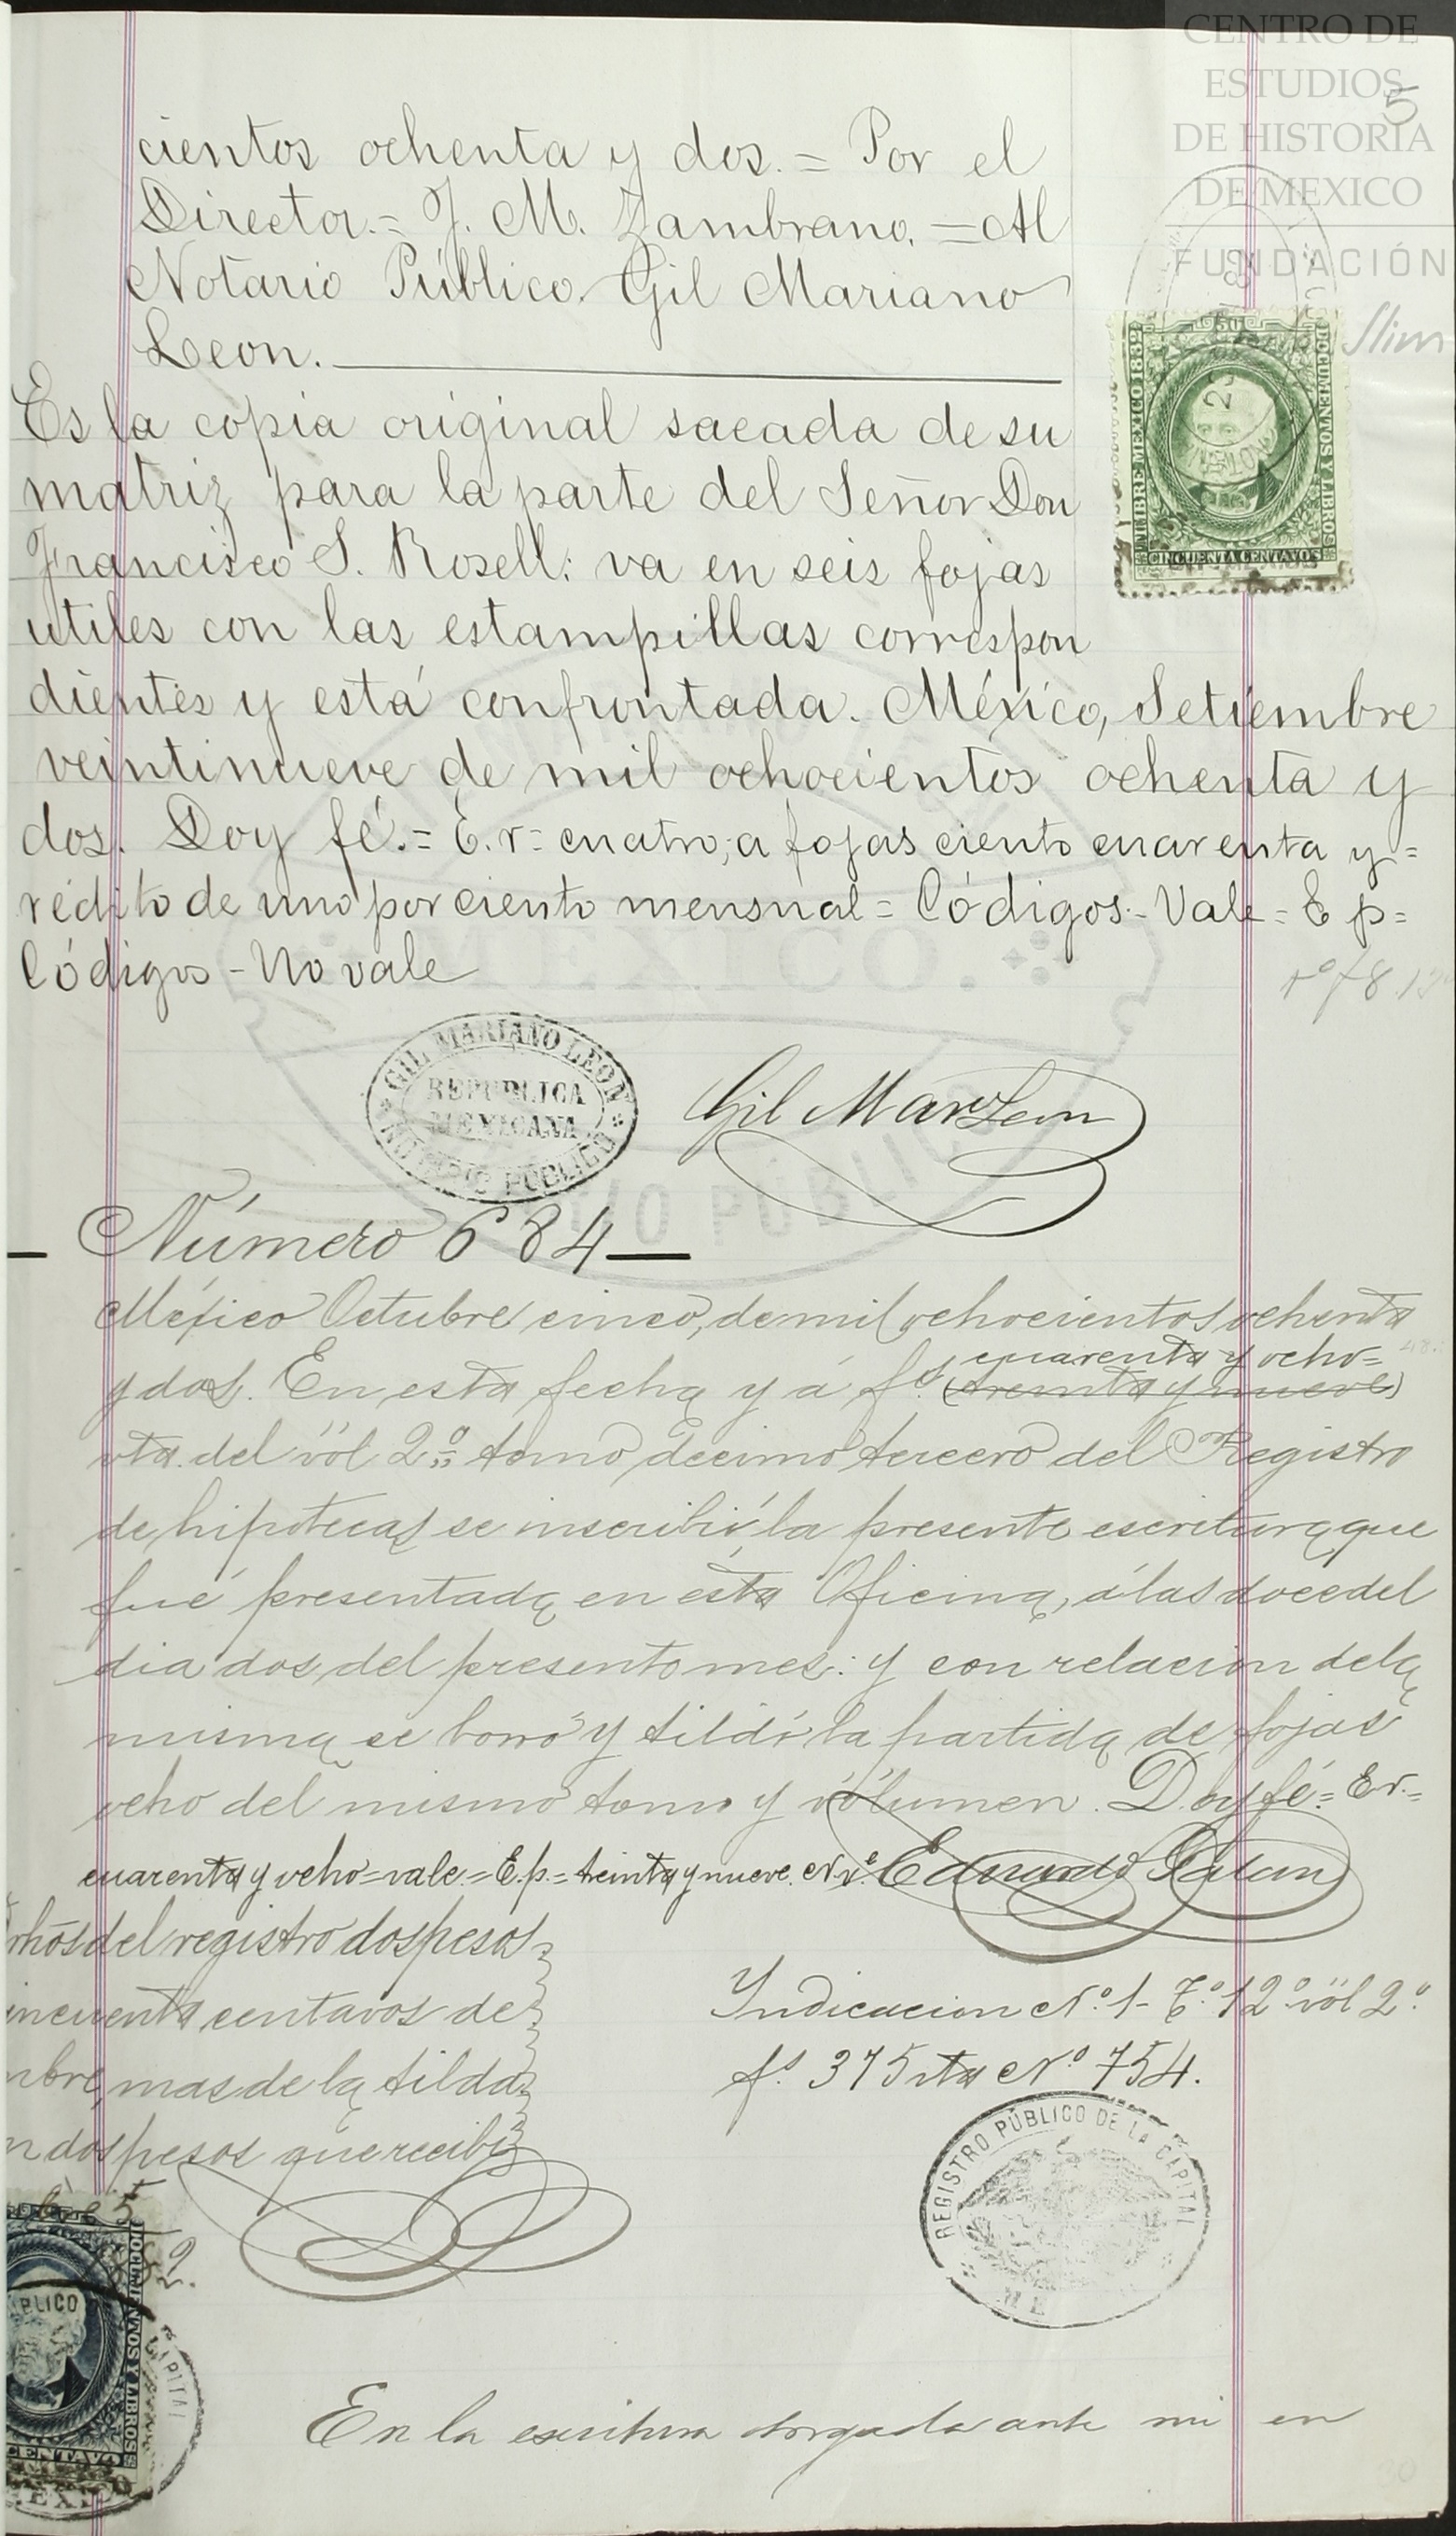 CENTRO DE
ESTUDIOS
DE HISTORIA
DE MEXICO
FUNDACIÓN
Slim
5
cientos ochenta y dos. = Por el
Director. = J. M. Zambrano. = Al
Notario Público Gil Mariano
Leon.
TIMBRE MEXICO 1882
50
DOCUMENTOS Y LIBROS
CINCUENTA CENTAVOS
Es la copia original sacada de su
matriz para la parte del Señor Don
Francisco S. Rosell: va en seis fojas
utiles con las estampillas correspon
dientes y está confrontada. México, Setiembre
veintinueve de mil ochocientos ochenta y
dos. Doy fé. = E. r = cuatro; a fojas ciento cuarenta y =
rédito de uno por ciento mensual = Códigos - Vale = E p =
Códigos - No vale
GIL MARIANO LEON
REPUBLICA
MEXICANA
NOTARIO PÚBLICO
Gil Marº Leon
MEXICO.
Número 684
México Octubre cinco, de mil ochocientos ochenta
cuarenta y ocho =
y dos. En esta fecha y á fs. (treinta y nueve)
vta. del vol 2º tomo décimo tercero del Registro
de hipotecas se inscribió la presente escritura que
fué presentada en esta Oficina, á las doce del
dia dos del presente mes: y con relacion de la
misma se borró y tildó la partida de fojas
ocho del mismo tomo y vólumen. Doy fé = Er. =
cuarenta y ocho = vale = E. p. = treinta y nueve. N. v.e Eduardo
rhós del registro dos pesos
incuenta centavos de
mbre, mas de la tilda
n dos pesos que recibí
Yndicacion Nº 1 - Tº 12º vol 2º
fs. 375 vta Nº 754.
REGISTRO PÚBLICO DE LA CAPITAL
DOCUMENTOS Y LIBROS
CENTAVO
En la escritura otorgada ante mi en